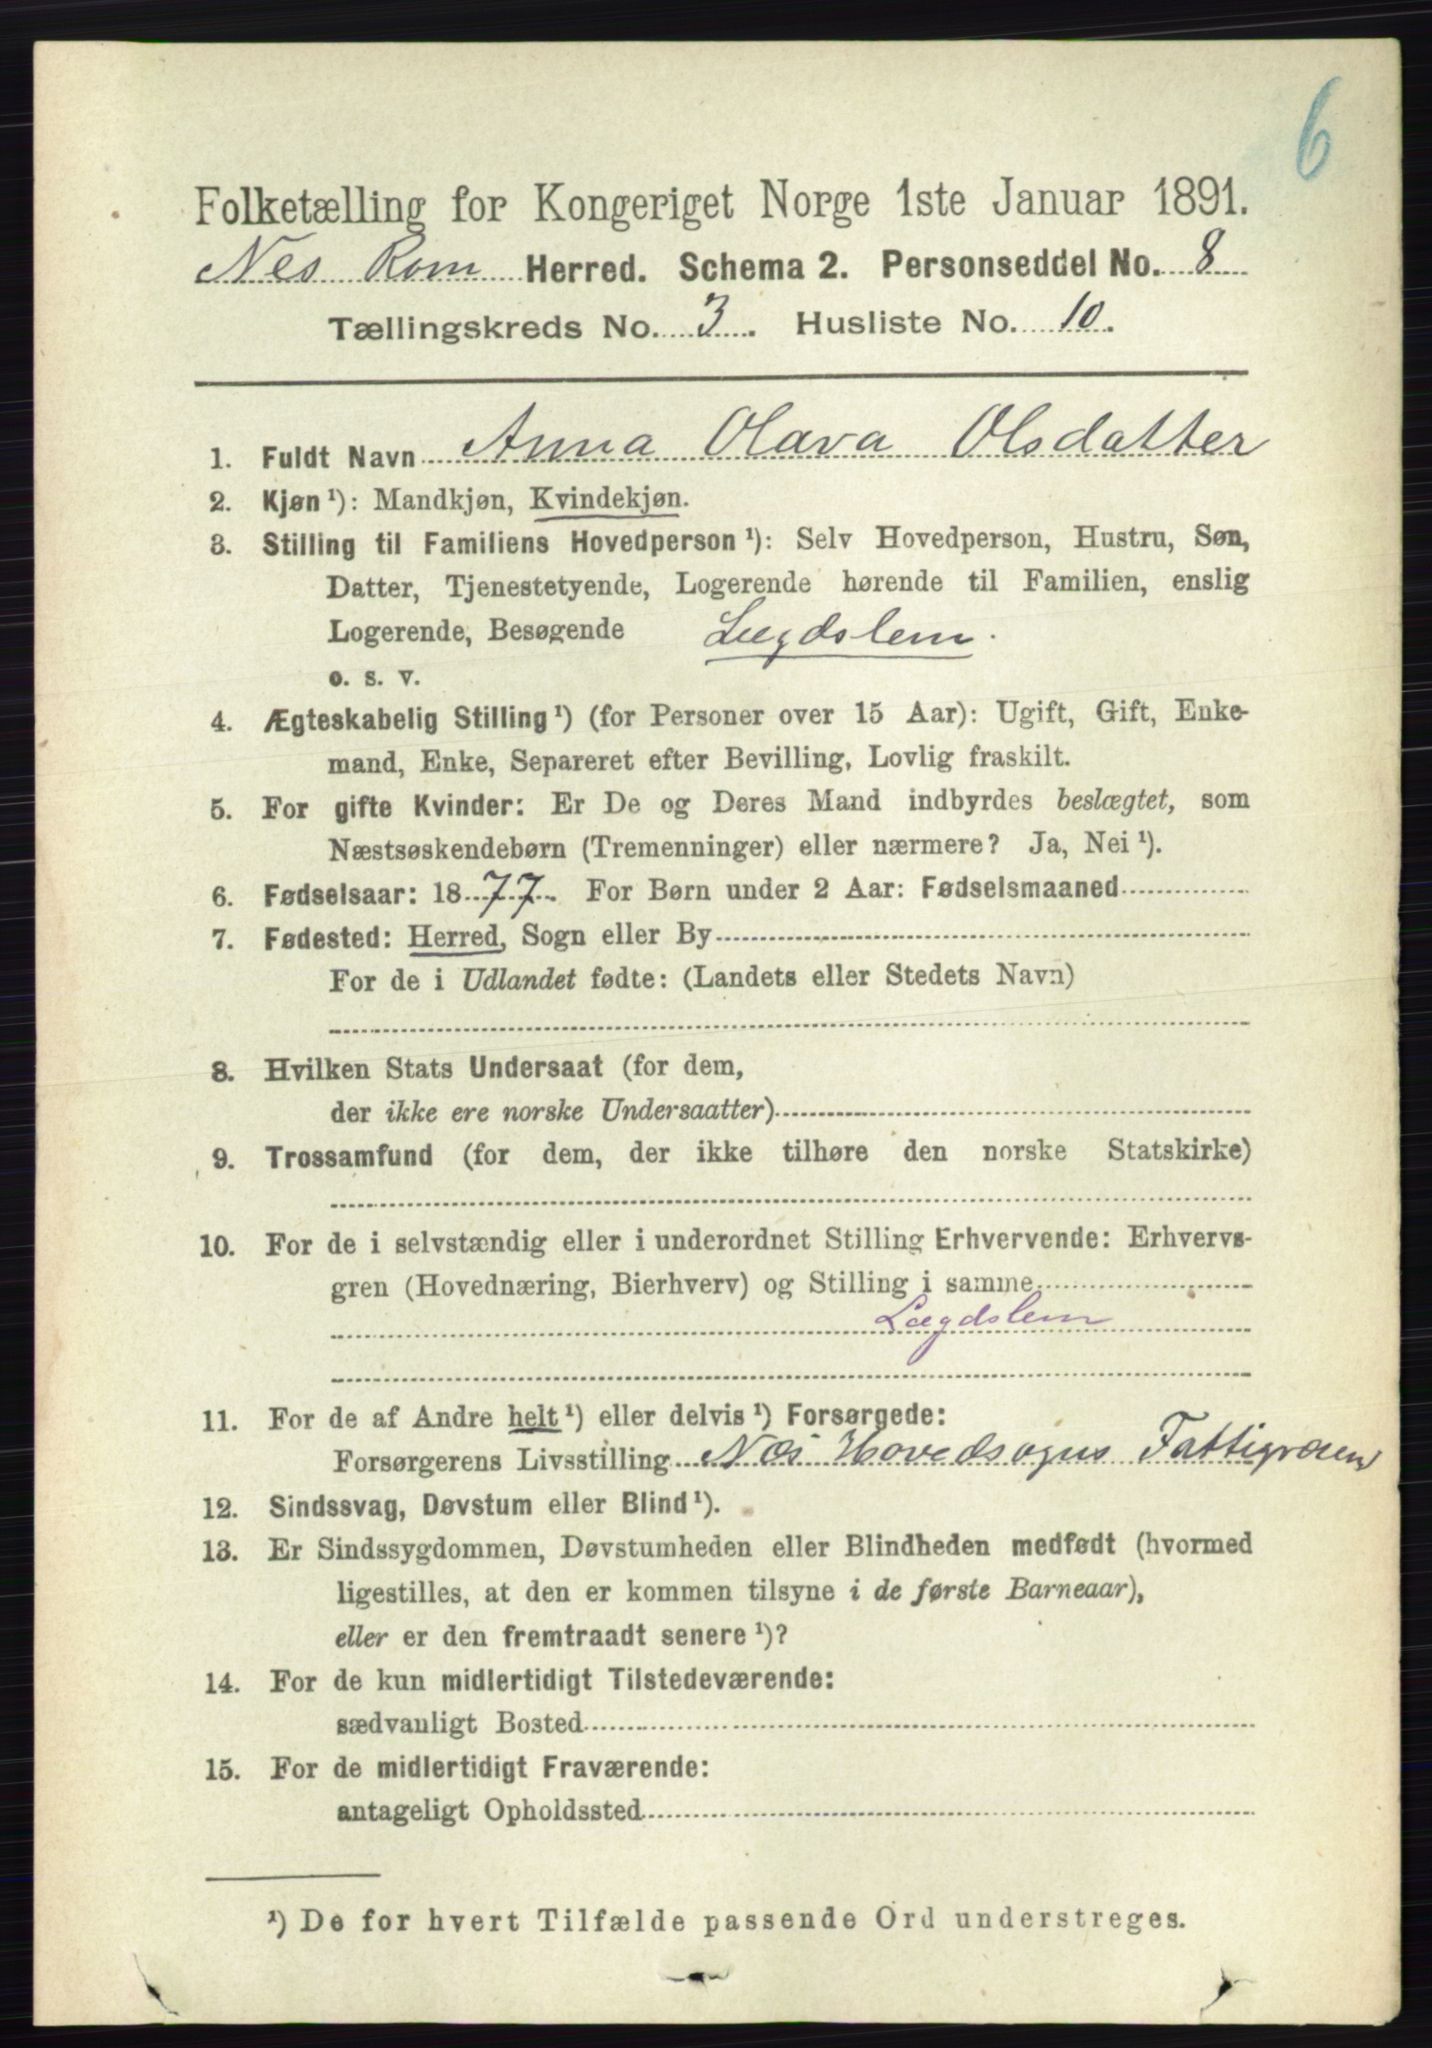 6
Folketælling for Kongeriget Norge 1ste Januar 1891.
Nes Rom Herred. Schema 2. Personseddel No. 8
Tællingskreds No. 3. Husliste No. 10.
1. Fuldt Navn Anna Olava Olsdatter
2. Kjøn ¹): Mandkjøn, Kvindekjøn.
3. Stilling til Familiens Hovedperson ¹): Selv Hovedperson, Hustru, Søn,
Datter, Tjenestetyende, Logerende hørende til Familien, enslig
Logerende, Besøgende Lægdslem.
o. s. v.
4. Ægteskabelig Stilling ¹) (for Personer over 15 Aar): Ugift, Gift, Enke-
mand, Enke, Separeret efter Bevilling, Lovlig fraskilt.
5. For gifte Kvinder: Er De og Deres Mand indbyrdes beslægtet, som
Næstsøskendebørn (Tremenninger) eller nærmere? Ja, Nei ¹).
6. Fødselsaar: 1877. For Børn under 2 Aar: Fødselsmaaned
7. Fødested: Herred, Sogn eller By
For de i Udlandet fødte: (Landets eller Stedets Navn)
8. Hvilken Stats Undersaat (for dem,
der ikke ere norske Undersaatter)
9. Trossamfund (for dem, der ikke tilhøre den norske Statskirke)
10. For de i selvstændig eller i underordnet Stilling Erhvervende: Erhvervs-
gren (Hovednæring, Bierhverv) og Stilling i samme
Lægdslem
11. For de af Andre helt ¹) eller delvis ¹) Forsørgede:
Forsørgerens Livsstilling Næs Hovedsogns Fattigvæsen
12. Sindssvag, Døvstum eller Blind ¹).
13. Er Sindssygdommen, Døvstumheden eller Blindheden medfødt (hvormed
ligestilles, at den er kommen tilsyne i de første Barneaar),
eller er den fremtraadt senere ¹)?
14. For de kun midlertidigt Tilstedeværende:
sædvanligt Bosted
15. For de midlertidigt Fraværende:
antageligt Opholdssted
¹) De for hvert Tilfælde passende Ord understreges.